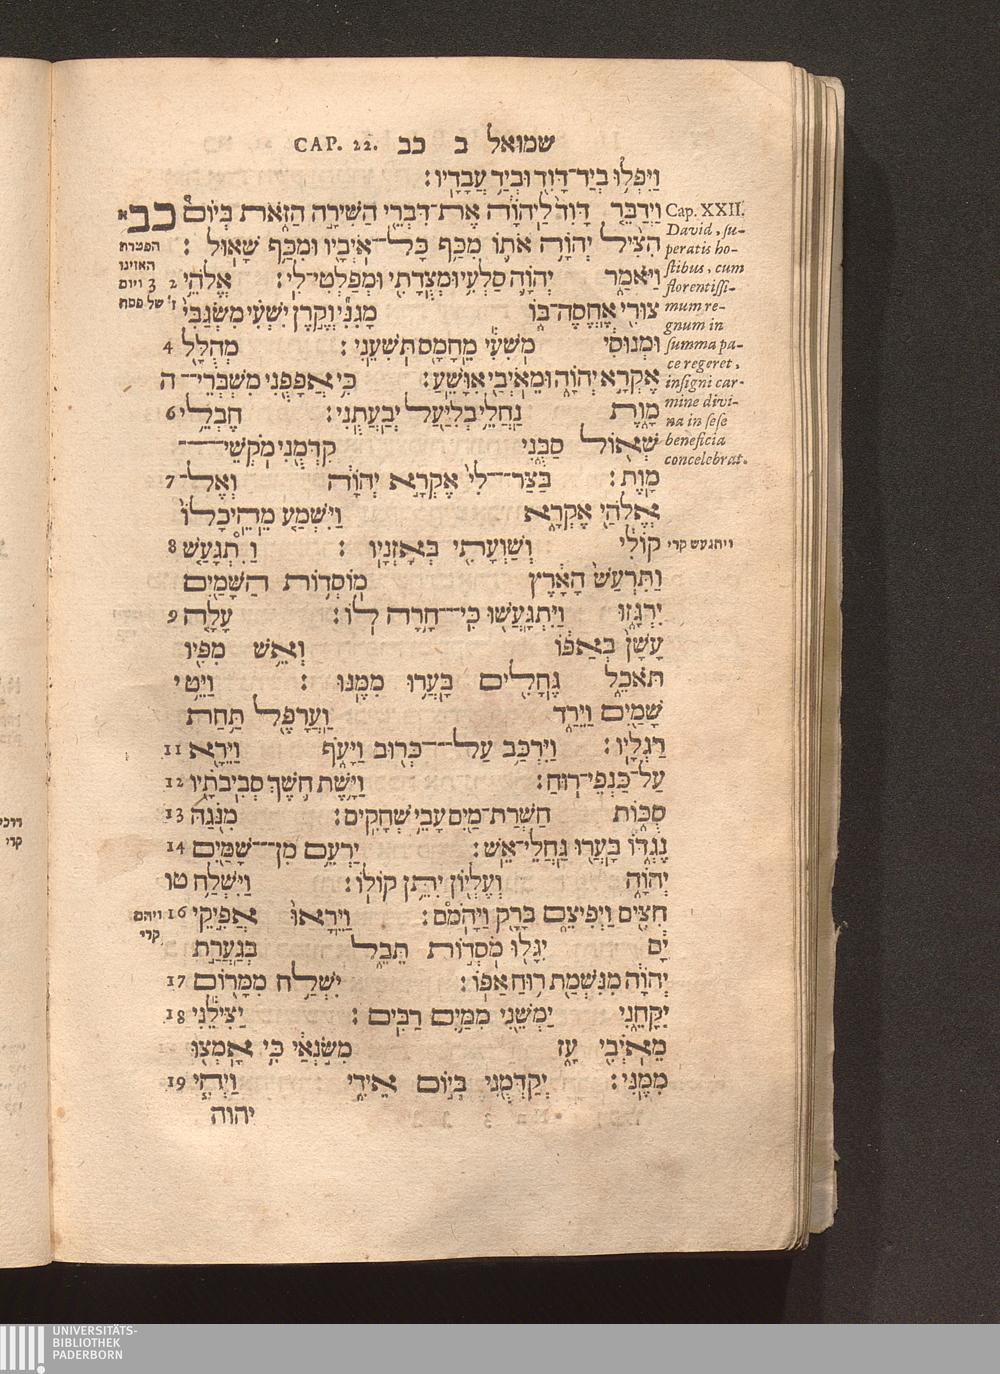 שמואל ב כב CAP. 22.
וַיִּפְּל֥וּ בְיַד־דָּוִ֖ד וּבְיַ֥ד עֲבָדָֽיו׃
וַיְדַבֵּ֤ר דָּוִד֙ לַֽיהוָ֔ה אֶת־דִּבְרֵ֖י הַשִּׁירָ֣ה הַזֹּ֑את בְּיוֹם֩ כב א
הִצִּ֨יל יְהוָ֥ה אֹת֛וֹ מִכַּ֥ף כָּל־אֹיְבָ֖יו וּמִכַּ֥ף שָׁאֽוּל׃
וַיֹּאמַ֑ר יְהוָ֛ה סַֽלְעִ֥י וּמְצֻדָתִ֖י וּמְפַלְטִי־לִֽי׃ אֱלֹהֵ֥י 2 3
צוּרִ֖י אֶחֱסֶה־בּ֑וֹ מָגִנִּ֞י וְקֶ֣רֶן יִשְׁעִ֗י מִשְׂגַּבִּי֙
וּמְנוּסִ֔י מֹשִׁעִ֕י מֵחָמָ֖ס תֹּשִׁעֵֽנִי׃ מְהֻלָּ֖ל 4
אֶקְרָ֣א יְהוָ֑ה וּמֵאֹיְבַ֖י אִוָּשֵֽׁעַ׃ כִּ֥י אֲפָפֻ֖נִי מִשְׁבְּרֵי־ ה
מָ֑וֶת נַחֲלֵ֥י בְלִיַּ֖עַל יְבַעֲתֻֽנִי׃ חֶבְלֵ֥י 6
שְׁא֖וֹל סַבֻּ֑נִי קִדְּמֻ֖נִי מֹֽקְשֵׁי־
מָֽוֶת׃ בַּצַּר־לִי֙ אֶקְרָ֣א יְהוָ֔ה וְאֶל־ 7
אֱלֹהַ֖י אֶקְרָ֑א וַיִּשְׁמַ֤ע מֵהֵֽיכָלוֹ֙
קוֹלִ֔י וְשַׁוְעָתִ֖י בְּאָזְנָֽיו׃ וַ֯תִּגְעַ֤שׁ 8
וַתִּרְעַשׁ֙ הָאָ֔רֶץ מוֹסְד֥וֹת הַשָּׁמַ֖יִם
יִרְגָּ֑זוּ וַיִּֽתְגָּעֲשׁ֖וּ כִּֽי־חָ֥רָה לֽוֹ׃ עָלָ֤ה 9
עָשָׁן֙ בְּאַפּ֔וֹ וְאֵ֥שׁ מִפִּ֖יו
תֹּאכֵ֑ל גֶּחָלִ֖ים בָּעֲר֥וּ מִמֶּֽנּוּ׃ וַיֵּ֥ט י
שָׁמַ֖יִם וַיֵּרַ֑ד וַעֲרָפֶ֖ל תַּ֥חַת
רַגְלָֽיו׃ וַיִּרְכַּ֥ב עַל־כְּר֖וּב וַיָּעֹ֑ף וַיֵּרָ֖א 11
עַל־כַּנְפֵי־רֽוּחַ׃ וַיָּ֥שֶׁת חֹ֛שֶׁךְ סְבִיבֹתָ֖יו 12
סֻכּ֑וֹת חַֽשְׁרַת־מַ֖יִם עָבֵ֥י שְׁחָקִֽים׃ מִנֹּ֖גַהּ 13
נֶגְדּ֑וֹ בָּעֲר֖וּ גַּחֲלֵי־אֵֽשׁ׃ יַרְעֵ֥ם מִן־שָׁמַ֖יִם 14
יְהוָ֑ה וְעֶלְי֖וֹן יִתֵּ֥ן קוֹלֽוֹ׃ וַיִּשְׁלַ֥ח טו
חִצִּ֖ים וַיְפִיצֵ֑ם בָּרָ֖ק וַיָּהֹמֵּֽם׃ וַיֵּֽרָאוּ֙ אֲפִ֣יקֵי 16
יָ֔ם יִגָּל֖וּ מֹסְד֣וֹת תֵּבֵ֑ל בְּגַעֲרַ֣ת
יְהוָ֔ה מִנִּשְׁמַ֖ת ר֥וּחַ אַפּֽוֹ׃ יִשְׁלַ֥ח מִמָּר֖וֹם 17
יִקָּחֵ֑נִי יַֽמְשֵׁ֖נִי מִמַּ֥יִם רַבִּֽים׃ יַצִּילֵ֕נִי 18
מֵאֹיְבִ֖י עָ֑ז מִשֹּׂ֣נְאַ֔י כִּ֥י אָמְצ֖וּ
מִמֶּֽנִּי׃ יְקַדְּמֻ֖נִי בְּי֣וֹם אֵידִ֑י וַיְהִ֧י 19
יהוה
Cap. XXII.
David, su-
peratis ho-
stibus, cum
florentissi-
mum re-
gnum in
summa pa-
ce regeret,
insigni car-
mine divi-
na in sese
beneficia
concelebrat.
ויתגעש קרי
הפטרת
האזינו
ויום
ז' של פסח
ויהם
קרי
קרי
UNIVERSITÄTS-
BIBLIOTHEK
PADERBORN